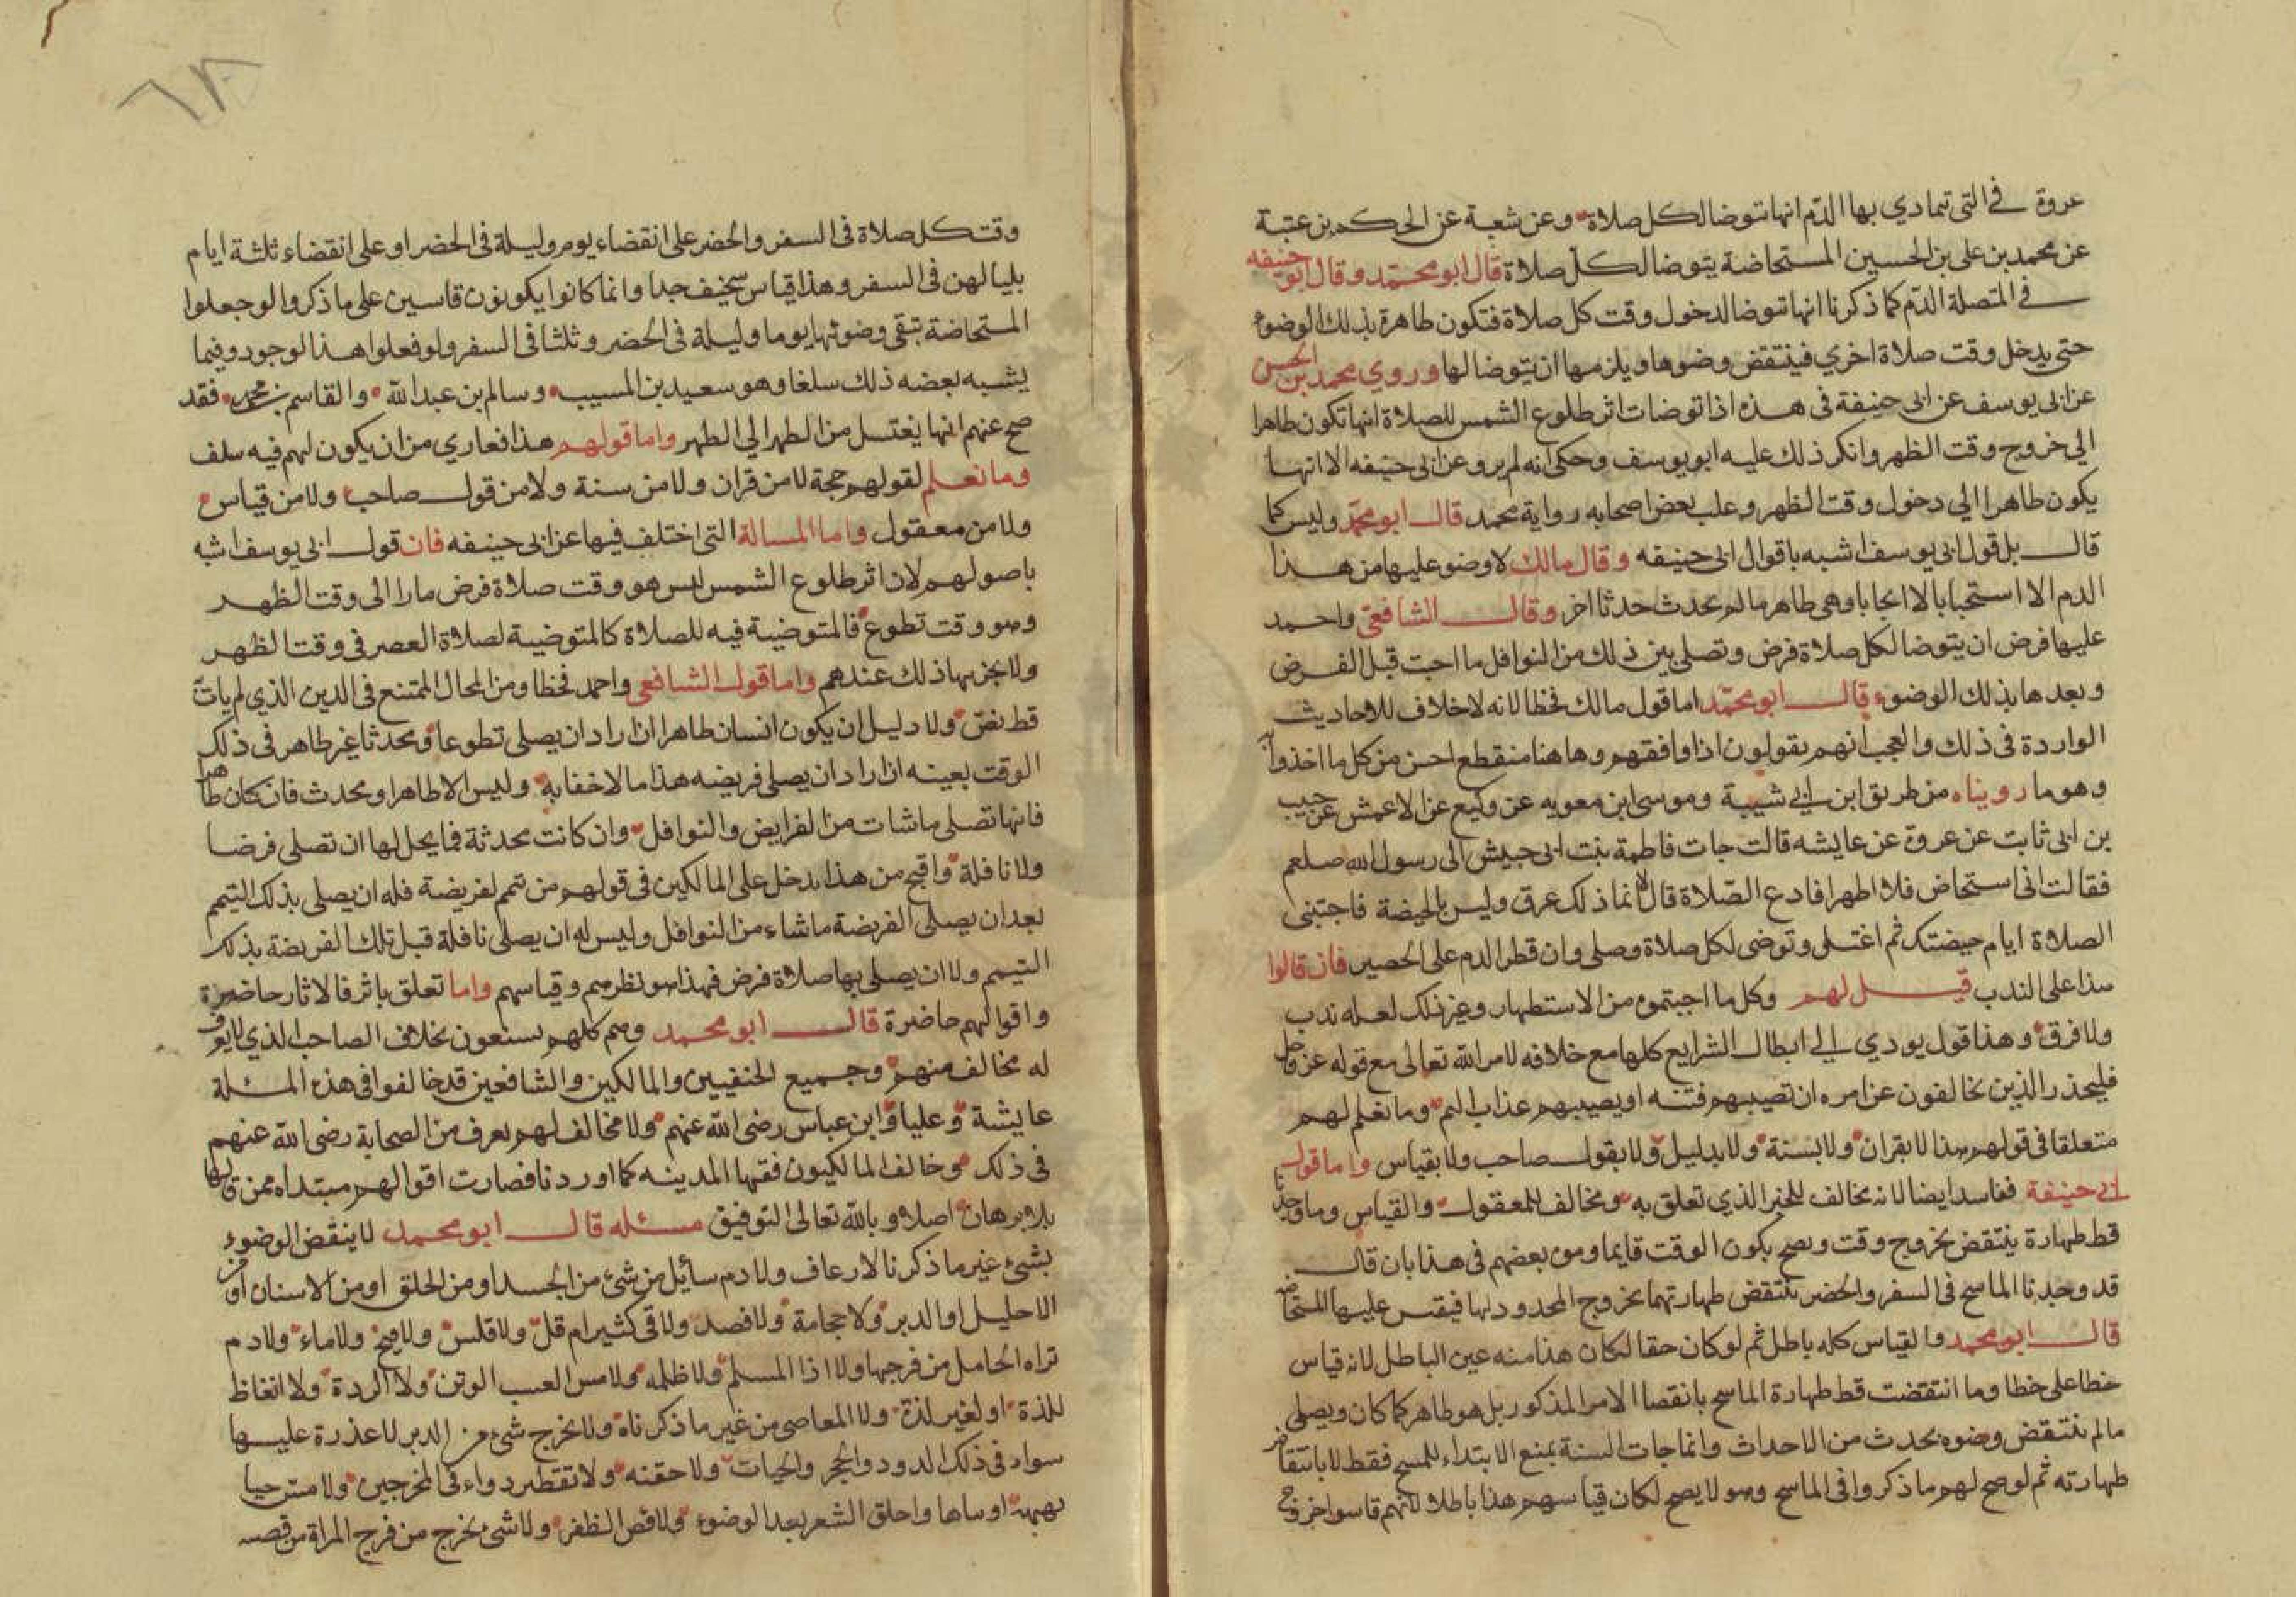 عروة في التي تمادي بها الدم انها تتوضا لكل صلاة وعن شعبة عن الحكم بن عتبة
عن محمد بن علي بن الحسين المستحاضة يتوضا لكل صلاة قال ابو محمد وقال ابو حنيفه
في المتصلة الدم كما ذكرنا انها تتوضا لدخول وقت كل صلاة فتكون طاهرة بذلك الوضوء
حتى يدخل وقت صلاة اخري فينتقض وضوها ويلزمها ان يتوضا لها وروي محمد بن الحسن
عن ابي يوسف عن ابي حنيفة في هذه اذا توضات اثر طلوع الشمس للصلاة انها تكون طاهرا
الي خروج وقت الظهر وانكر ذلك عليه ابو يوسف وحكي انه لم يرو عن ابي حنيفه الا انها
يكون طاهرا الي دخول وقت الظهر وعلب بعض اصحابه رواية محمد قال ابو محمد وليس كما
قال بل قول ابي يوسف اشبه باقوال ابي حنيفه وقال مالك لا وضو عليها من هذا
الدم الا استحبابا لا ايجابا وهي طاهر ما لم يحدث حدثا اخر وقال الشافعي واحمد
عليها فرض ان يتوضا لكل صلاة فرض وتصلي بين ذلك من النوافل ما احبت قبل الفرض
وبعدها بذلك الوضوء قال ابو محمد اما قول مالك فخطا لانه لا خلاف للاحاديث
الواردة في ذلك والعجب انهم يقولون اذا وافقهم وهاهنا منقطع احسن من كل ما اخذوا به
وهو ما رويناه من طريق ابن ابي شيبة وموسى ابن معويه عن وكيع عن الاعمش عن حبيب
بن ابي ثابت عن عروة عن عايشه قالت جات فاطمة بنت ابي حبيش الى رسول الله صلعم
فقالت اني استحاض فلا اطهر افادع الصلاة قال لا انما ذلك عرق وليس بالحيضة فاجتنبي
الصلاة ايام حيضتك ثم اغتسلي وتوضي لكل صلاة وصلي وان قطر الدم على الحصير فان قالوا
هذا على الندب قيل لهم وكل ما اجبتموه من الاستطهار وغير ذلك لعله ندب
ولا فرق وهذا قول يودي الي ابطال الشرايع كلها مع خلافه لامر الله تعالى مع قوله عز وجل
فليحذر الذين يخالفون عن امره ان تصيبهم فتنه او يصيبهم عذاب اليم وما نعلم لهم
متعلقا في قولهم هذا لا بقران ولا بسنة ولا بدليل ولا بقول صاحب ولا بقياس واما قول
ابي حنيفة ففاسد ايضا لانه مخالف للخبر الذي تعلق به ومخالف للمعقول والقياس وما وجدنا
قط طهارة ينتقض بخروج وقت ويصح بكون الوقت قايما وموه بعضهم في هذا بان قال
قد وجدنا الماسح في السفر والحضر تنتقض طهارتهما بخروج المحدود لها فيقس عليها المستحاضه
قال ابو محمد والقياس كله باطل ثم لو كان حقا لكان هذا منه عين الباطل لانه قياس
خطا على خطا وما انتقضت قط طهارة الماسح بانقضا الامر المذكور بل هو طاهر كما كان ويصلي
ما لم ينتقض وضوه بحدث من الاحداث وانما جات السنة بمنع الابتداء للمسح فقط لا بانتقاض
طهارته ثم لو صح لهم ما ذكروا في الماسح وهو لا يصح لكان قياسهم هذا باطلا لانهم قاسوا خروج
وقت كل صلاة في السفر والحضر على انقضاء يوم وليلة في الحضر او على انقضاء ثلثة ايام
بلياليهن في السفر وهذا قياس سخيف جدا وانما كانوا يكونون قاسين على ما ذكروا لو جعلوا
المستحاضة تبقى وضوئها يوما وليلة في الحضر وثلثا في السفر ولو فعلوا هذا لوجدوا فيما
يشبه بعضه ذلك سلفا وهو سعيد بن المسيب وسالم بن عبد الله والقاسم بن محمد فقد
صح عنهم انها يغتسل من الظهر الي الظهر واما قولهم هذا فعاري من ان يكون لهم فيه سلف
وما نعلم لقولهم حجة لا من قران ولا من سنة ولا من قول صاحب ولا من قياس
ولا من معقول واما المسالة التي اختلف فيها عن ابي حنيفه فان قول ابي يوسف اشبه
باصولهم لان اثر طلوع الشمس ليس هو وقت صلاة فرض مارا الى وقت الظهر
وهو وقت تطوع فالمتوضية فيه للصلاة كالمتوضية لصلاة العصر في وقت الظهر
ولا يجزيها ذلك عندهم واما قول الشافعي واحمد فخطا ومن المحال الممتنع في الدين الذي لم يات
قط نص ولا دليل ان يكون انسان طاهرا ان اراد ان يصلي تطوعا ومحدثا غير طاهر في ذلك
الوقت بعينه ان اراد ان يصلي فريضه هذا ما لا خفا به وليس الا طاهرا ومحدث فان كان طاهرا
فانها تصلي ما شات من الفرايض والنوافل وان كانت محدثة فما يحل لها ان تصلي فرضا
ولا نافلة واقبح من هذا يدخل على المالكين في قولهم من تيمم لفريضة فله ان يصلي بذلك التيمم
بعد ان يصلي الفريضة ما شاء من النوافل وليس له ان يصلي نافلة قبل تلك الفريضة بذلك
التيمم ولا ان يصلي بها صلاة فرض فهذا هو نظرهم وقياسهم واما تعلق باثر فالاثار حاضرة
واقوالهم حاضرة قال ابو محمد وهم كلهم يسنعون بخلاف الصاحب الذي لا يعرف
له مخالف منهم وجميع الحنفيين والمالكين والشافعين قد خالفوا في هذه المسئلة
عايشة وعليا وابن عباس رضي الله عنهم ولا مخالف لهم يعرف من الصحابة رضي الله عنهم
في ذلك وخالف المالكيون فقها المدينه كما اوردنا فصارت اقوالهم مبتداه ممن قالها
بلا برهان اصلا وبالله تعالى التوفيق مسئله قال ابو محمد لا ينقض الوضوء
بشئ غير ما ذكرنا لا رعاف ولا دم سائيل من شئ من الجسد او من الحلق او من الاسنان او من
الاحليل او الدبر ولا حجامة ولا فصد ولا قى كثير ام قل ولا قلس ولا قيح ولا ماء ولا دم
تراه الحامل من فرجها ولا اذا المسلم ولا ظلمه ولا مس الصليب الوثن ولا الردة ولا انعاظ
للذة او لغير لذة ولا المعاصي من غير ما ذكرناه ولا يخرج شئ من الدبر لا عذرة عليها
سواء في ذلك الدود والحجر والحيات ولا حقنه ولا تقطير دواء في المخرجين ولا مس حيا
بهيمة او ساها واحلق الشعر بعد الوضوء ولا قص الظفر ولا شئ يخرج من فرج المراة من قصه